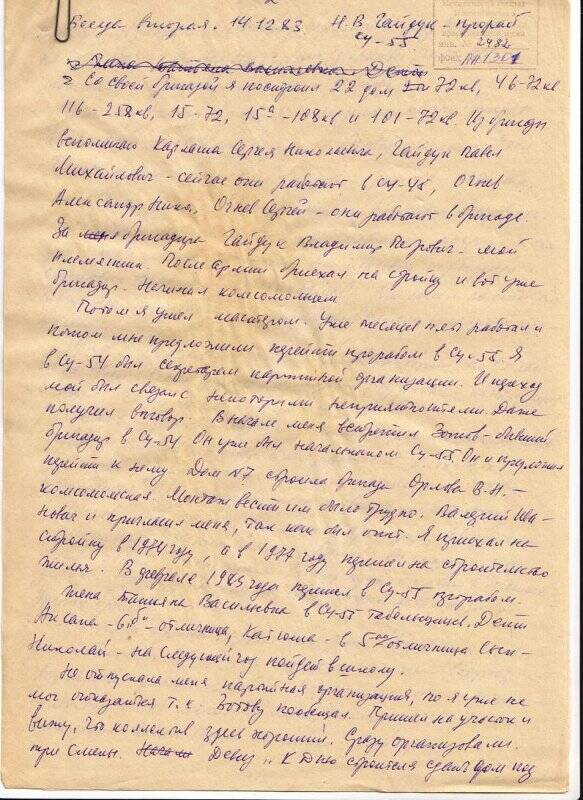 Беседа вторая. 14.12.83 Н.В. Гайдук - прораб
СУ-55
инв. № 2482
фонд
Жена Татьяна Васильевна Дети
Со своей бригадой я построил 22 дом 72 кв, 46-72 кв
116-258 кв, 15-72, 15а-108 кв и 101-72 кв. Из бригады
вспоминаю Карлаша Сергея Николаевича, Гайдук Павел
Михайлович - сейчас они работают в СУ-45, Огнев
Александр Огнев Сергей - они работают в бригаде.
За меня бригадира Гайдук Владимир Петрович - мой
племянник После армии приехал на стройку и вот уже
бригадир. Начинал комсомольцем
Потом я ушел мастером. Уже месяцев пять работал и
потом мне предложили перейти прорабом в СУ-55. Я
в СУ-54 был секретарем партийной организации. И переход
мой был связан с некоторыми неприятностями. Даже
получил выговор. Вначале меня встретил Зотов - бывший
бригадир в СУ-54 Он уже был начальником СУ-55. Он и предложил
перейти к нему Дом №7 строила бригада Орлова В.Н. -
комсомольская. Монтаж вести им было трудно. Валерий Ива-
нович и пригласил меня, так как был опыт. Я приехал на
стройку в 1974 году, а в 1977 году перешел на строительство
жилья. В феврале 1983 года перешел в СУ-55 прорабом.
Жена Татьяна Васильевна в СУ-55 табельщицей. Дети
Оксана - 6 "б" - отличница, Катюша - в 5 отличница Сын -
Николай - на следующий год пойдет в школу.
Не отпускала меня партийная организация, но я уже не
мог отказаться т.к. Зотову пообещал. Пришел на участок и
вижу, что коллектив здесь хороший. Сразу организовали
три смены. Начали Девиз „К Дню строителя сдать дом под